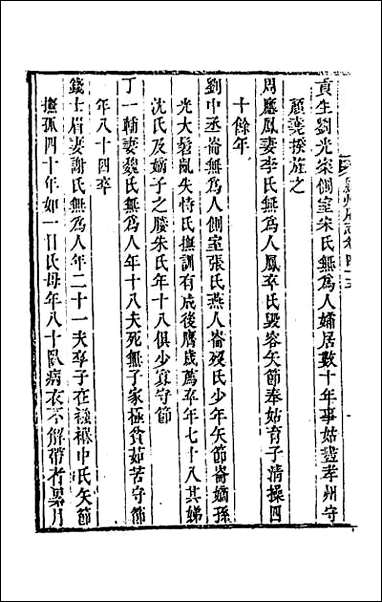 貢生劉光宋側室宋氏無為人孀居數十年事姑盡孝州守
顏堯揆旌之
周應鳳妻李氏無為人鳳卒氏毀容矢節奉姑育子清操四
十餘年
劉中丞崙無為人側室張氏燕人崙歿氏少年矢節崙嫡孫
光大髫齔失恃氏撫訓有成後膺歲薦卒年七十八其娣
沈氏及嫡子之媵朱氏年十八俱少寡守節
丁一輔妻魏氏無為人年十八夫死無子家極貧茹苦守節
年八十四卒
錢士眉妻謝氏無為人年二十一夫卒子在襁褓中氏矢節
撫孤四十年如一日氏母年八十臥病衣不解帶者累月